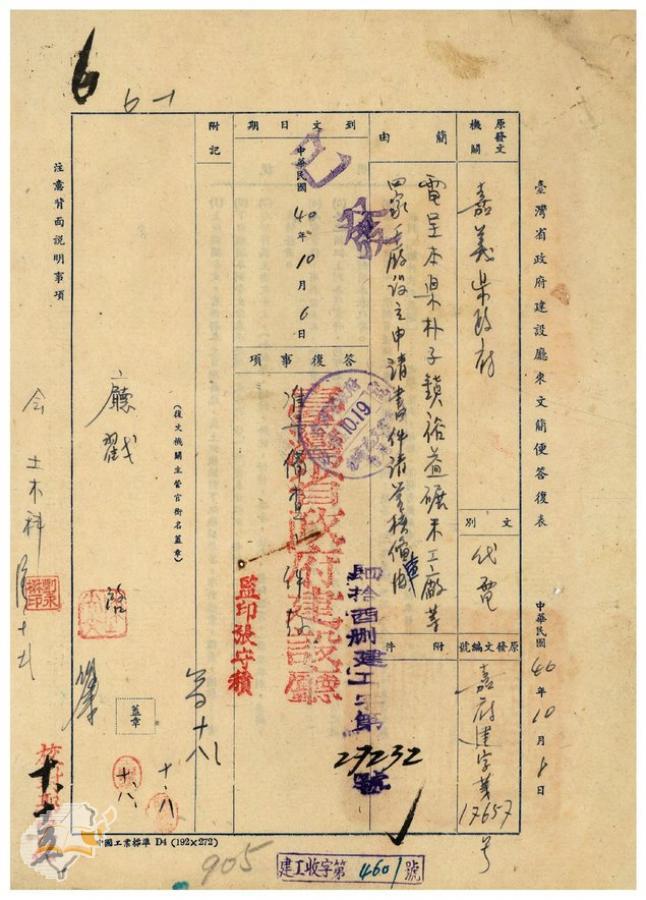 臺灣省政府建設廳來文簡便答復表
中華民國40年10月8日
原發文機關
嘉義県政府
文別
代電
原發文編號
嘉府建字第17657号
簡由
電呈本県朴子鎮裕益碾米工廠等
四家工廠設立申請書件請鑒核備由
附件
到文日期
中華民國40年10月6日
答復事項
准予備查
附記
已發
10.19
臺灣省政府建設廳
監印張守積
肆拾酉刪建工字第
27232
號
(復文機關主管官銜名蓋章)
廳戳
蓋章
十八
十·八
注意背面說明事項
會
土木科
6
6-1
中國工業標準 D4 (192×272)
905
建工收字第4601號